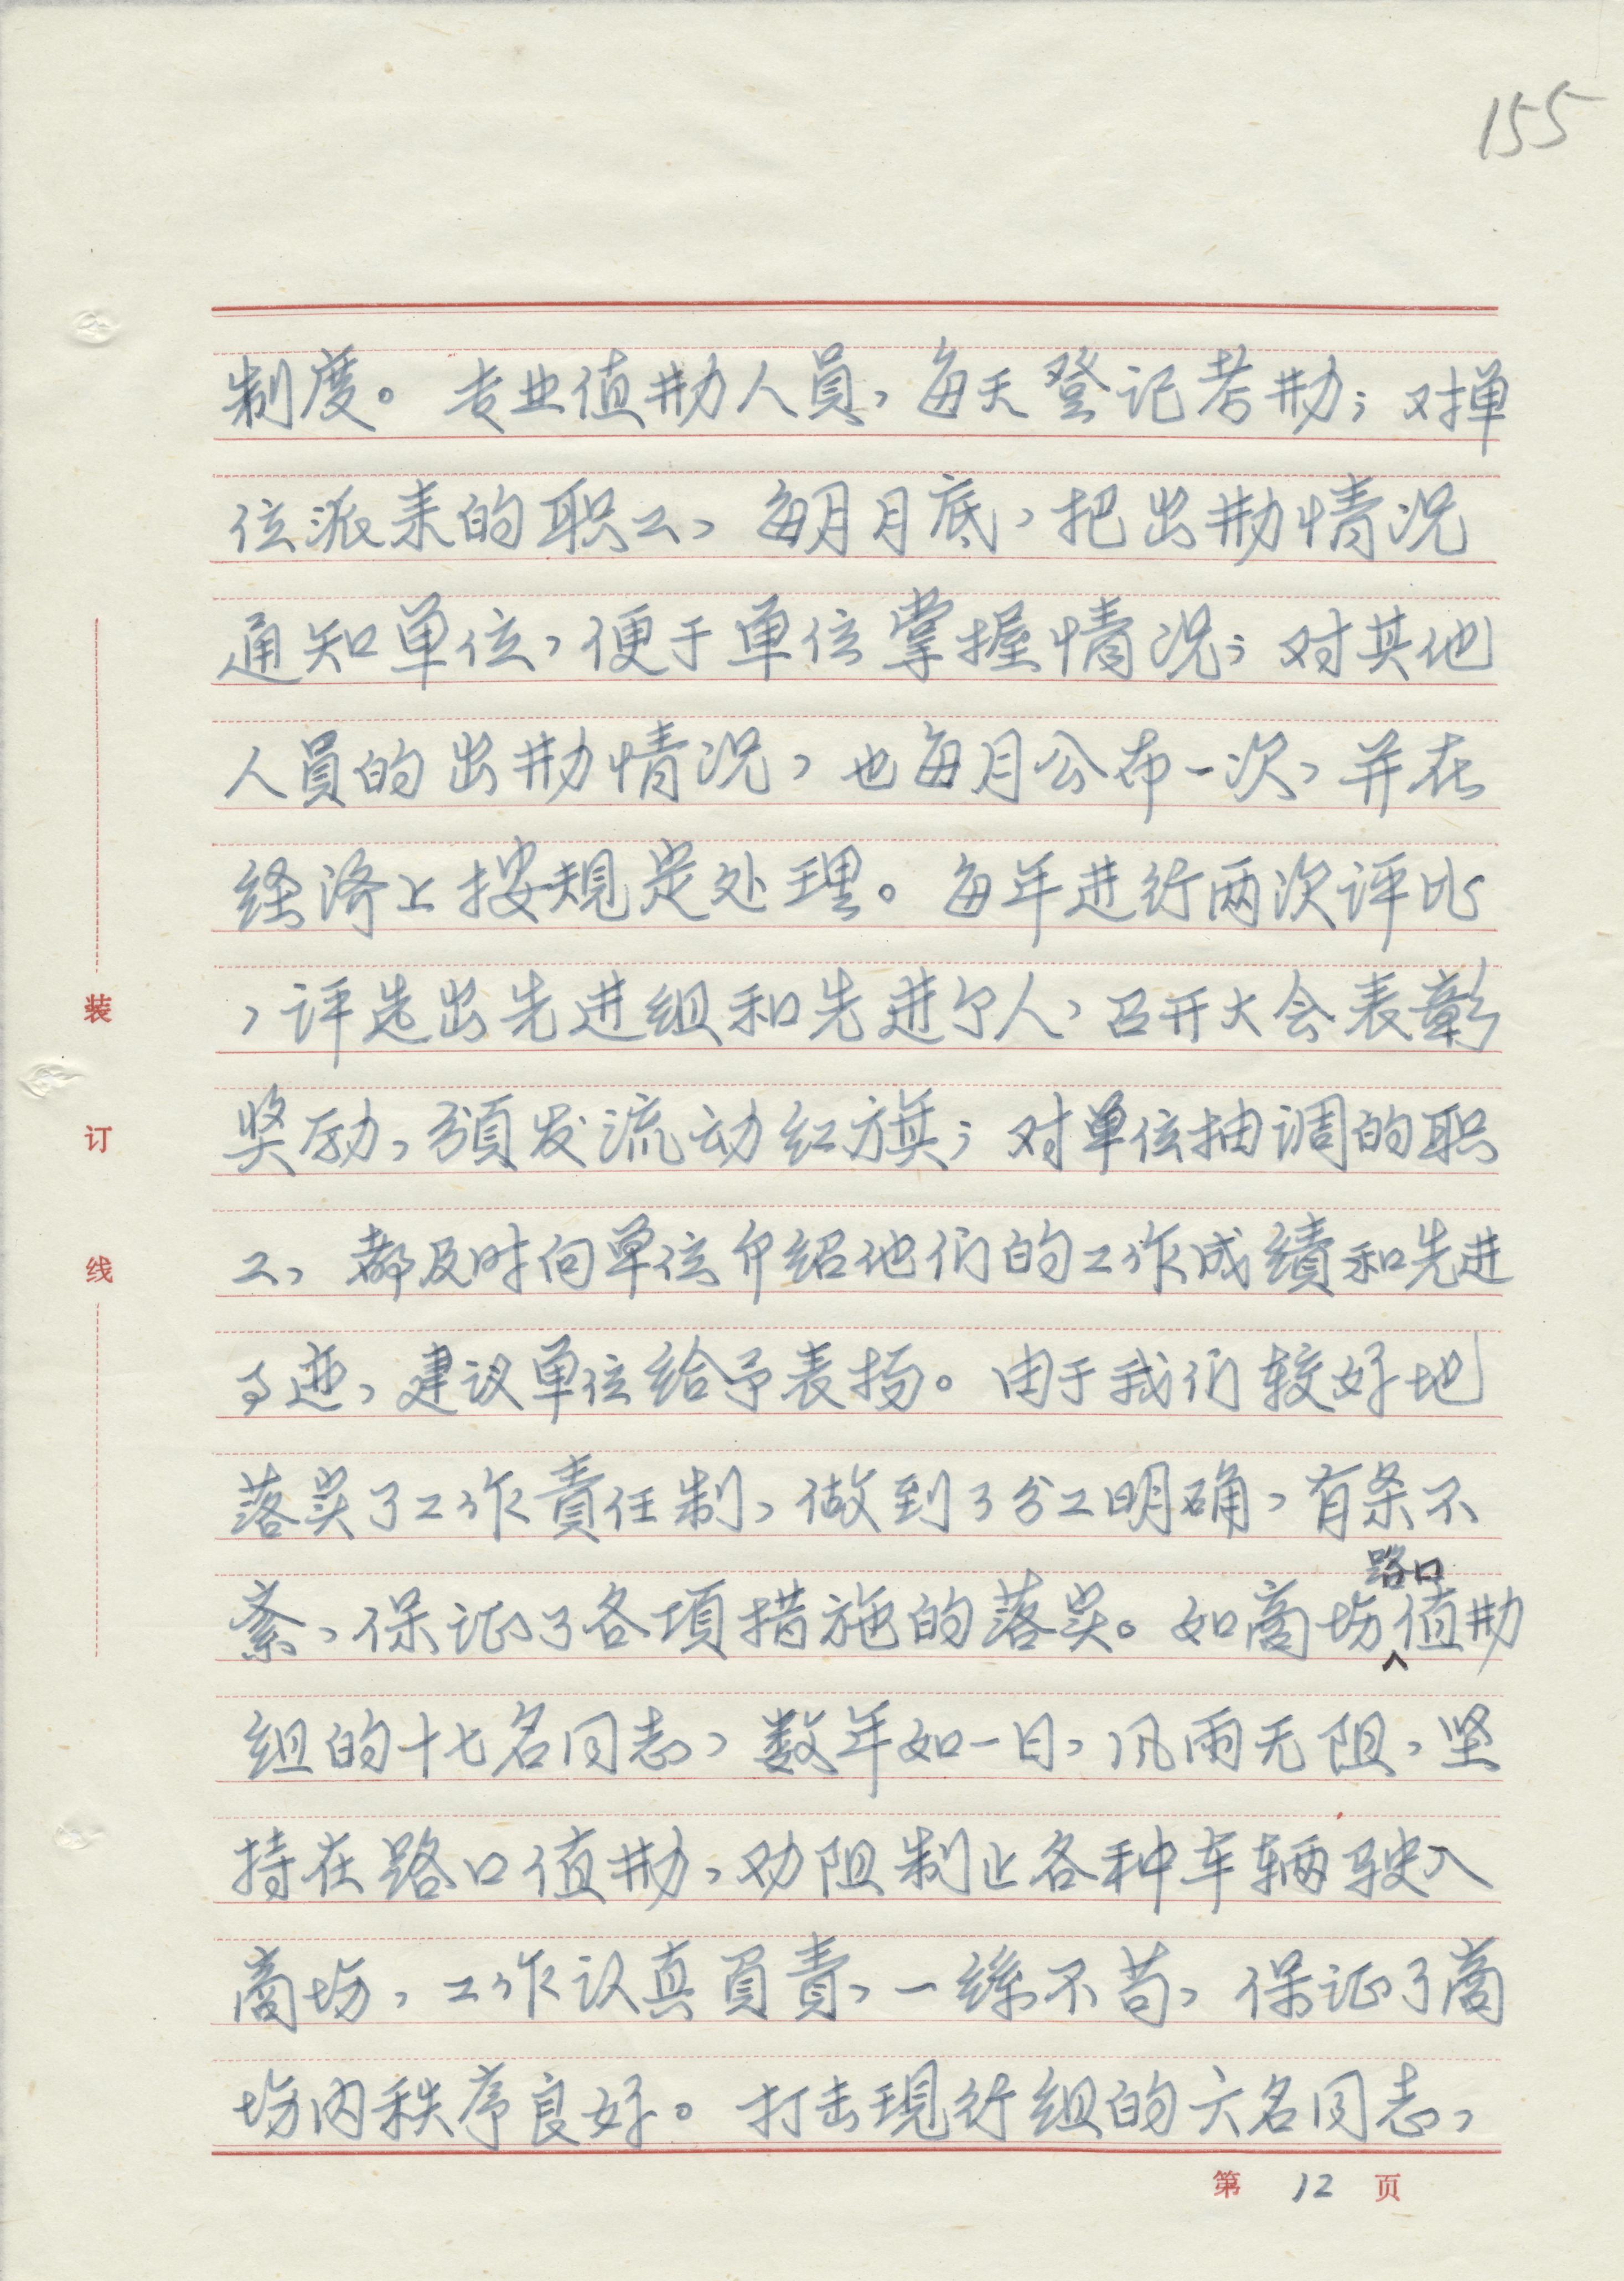 155
制度。专业值勤人員，每天登记考勤；对单
位派来的职工，每月月底，把出勤情况
通知单位，便于单位掌握情况；对其他
人員的出勤情况，也每月公布一次，并在
经济上按規定处理。每年进行两次评比
，评选出先进组和先进个人，召开大会表彰
奖励，頒发流动红旗；对单位抽调的职
工，都及时向单位介绍他们的工作成績和先进
事迹，建议单位给予表扬。由于我们较好地
落实了工作責任制，做到了分工明确，有条不
紊，保证了各項措施的落实。如商场路口值勤
组的十七名同志，数年如一日，风雨无阻，坚
持在路口值勤，劝阻制止各种车辆驶入
商场，工作认真負責，一絲不苟，保证了商
场内秩序良好。打击現行组的六名同志，
装
订
线
第 12 页